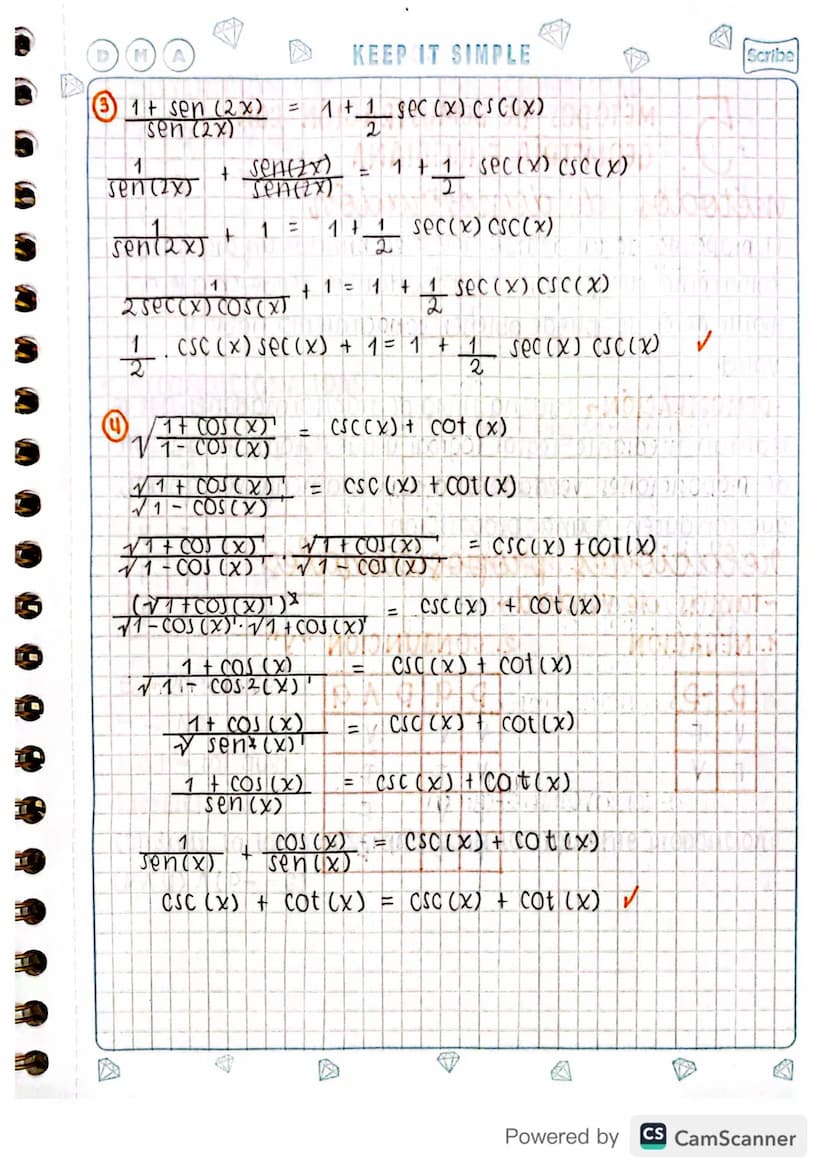 D M A KEEP IT SIMPLE Scribe
③ 1 + sen (2x) / sen (2x) = 1 + 1/2 sec (x) csc(x)
1/sen(2x) + sen(2x)/sen(2x) = 1 + 1/2 sec(x) csc(x)
1/sen(2x) + 1 = 1 + 1/2 sec(x) csc(x)
1/2sec(x) cos(x) + 1 = 1 + 1/2 sec(x) csc(x)
1/2 . csc (x) sec(x) + 1 = 1 + 1/2 sec(x) csc(x) ✓
④ √1 + cos(x) / 1 - cos (x) = csc(x) + cot (x)
√1 + cos(x) / √1 - cos(x) = csc (x) + cot(x)
√1 + cos (x) / √1 - cos (x) . √1 + cos(x) / √1 - cos (x) = csc(x) + cot(x)
(√1 + cos(x))² / √1 - cos (x) . √1 + cos(x) = csc(x) + cot (x)
1 + cos (x) / √1 - cos 2(x) = csc (x) + cot (x)
1 + cos (x) / √ sen²(x) = csc (x) + cot(x)
1 + cos(x) / sen(x) = csc(x) + cot(x)
1/sen(x) + cos(x)/sen(x) = csc(x) + cot(x)
csc (x) + cot (x) = csc(x) + cot (x) ✓
Powered by CS CamScanner